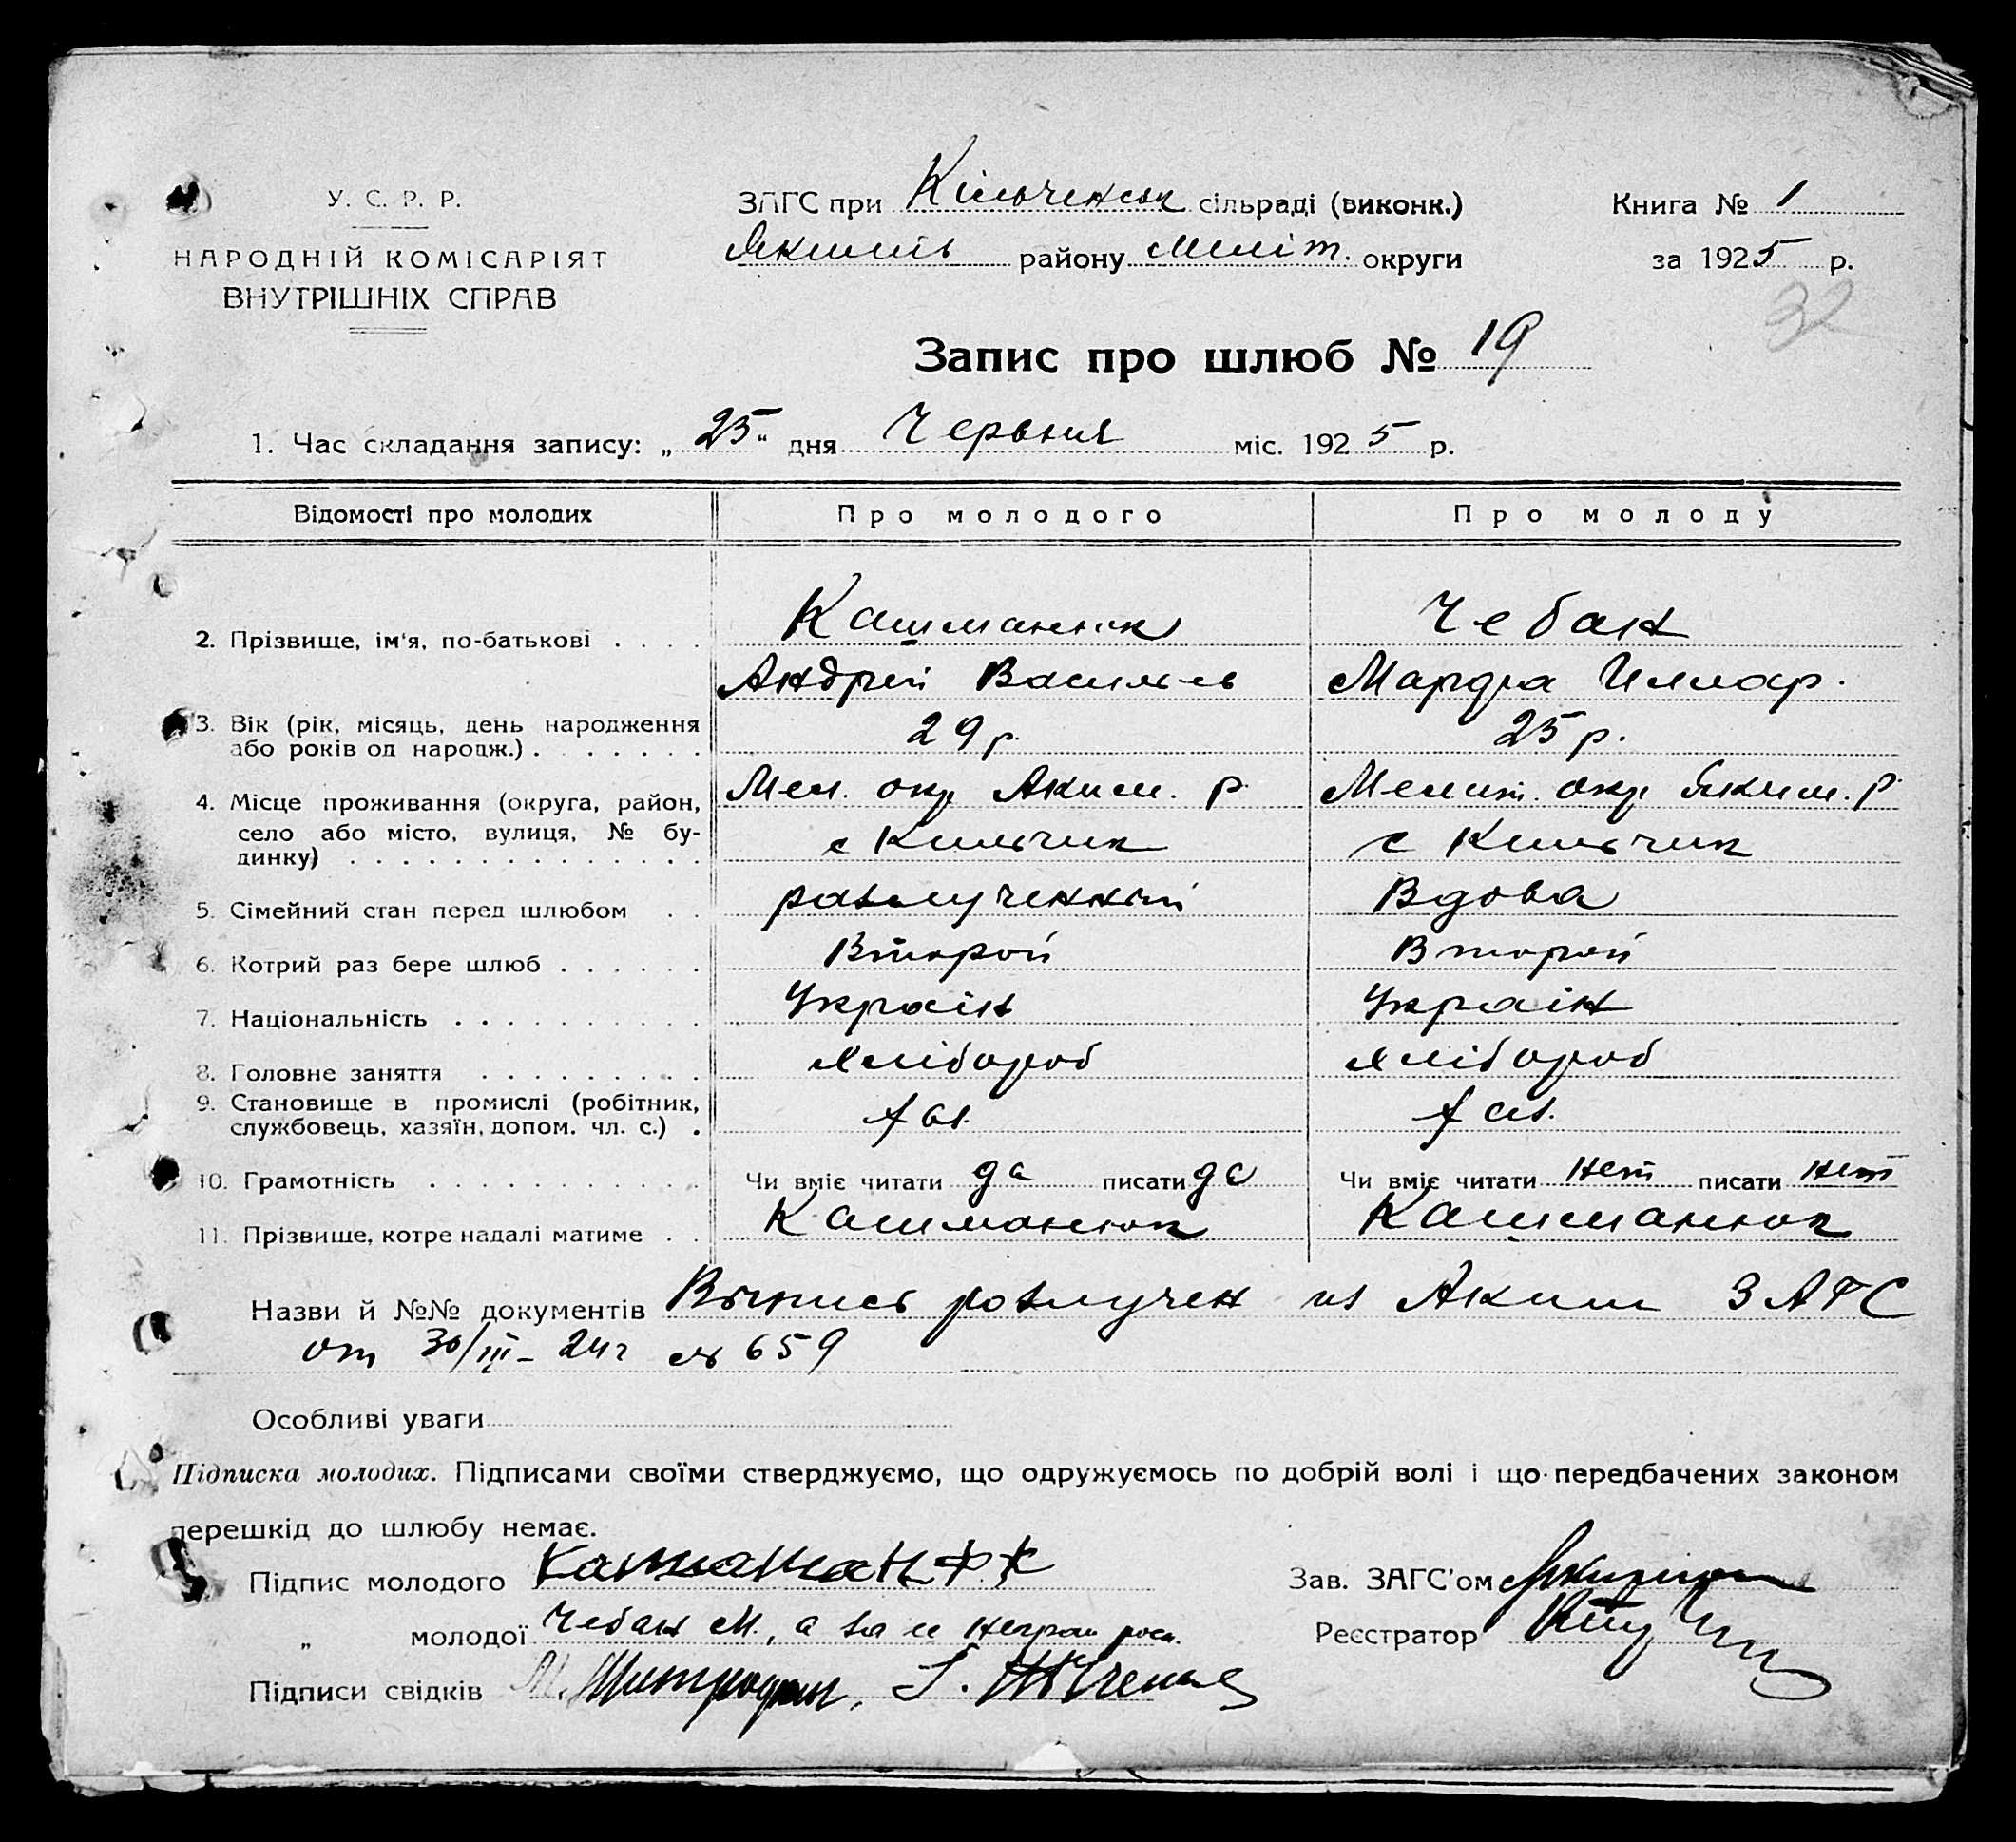 У. С. Р. Р.
НАРОДНІЙ КОМІСАРІЯТ
ВНУТРІШНІХ СПРАВ
ЗАГС при Кільченськ сільраді (виконк.)
Якимів району Меліт. округи
Книга № 1
за 1925 р.
32
Запис про шлюб № 19
1. Час складання запису: „25“ дня Червня міс. 1925 р.
Відомості про молодих Про молодого Про молоду
2. Прізвище, ім'я, по-батькові . . . . Кашманюк Чебан
Андрей Васильев Марфа Иллар.
3. Вік (рік, місяць, день народження
або років од народж.) . . . . . . . 29 р. 25 р.
4. Місце проживання (округа, район, Мел. окр Аким. р. Мелит. окр Яким. р
село або місто, вулиця, № бу- с Кильчик с Кильчик
динку) . . . . . . . . . . . . . .
5. Сімейний стан перед шлюбом . . разлученный Вдова
6. Котрий раз бере шлюб . . . . . . Второй Второй
7. Національність . . . . . . . . . . Україн Україн
8. Головне заняття . . . . . . . . . Хлібороб Хлібороб
9. Становище в промислі (робітник,
службовець, хазяїн, допом. чл. с.) . хаз. хаз.
10. Грамотність . . . . . . . . . . . Чи вміє читати да писати да Чи вміє читати нет писати нет
11. Прізвище, котре надалі матиме . . Кашманюк Кашманюк
Назви й №№ документів Выпись разлучен из Аким ЗАГС
от 30/III – 24 г № 659
Особливі уваги
Підписка молодих. Підписами своїми стверджуємо, що одружуємось по добрій волі і що передбачених законом
перешкід до шлюбу немає.
Підпис молодого
Зав. ЗАГС'ом
„ молодої Чебан М., а за ее неграм росп.
Реєстратор
Підписи свідків